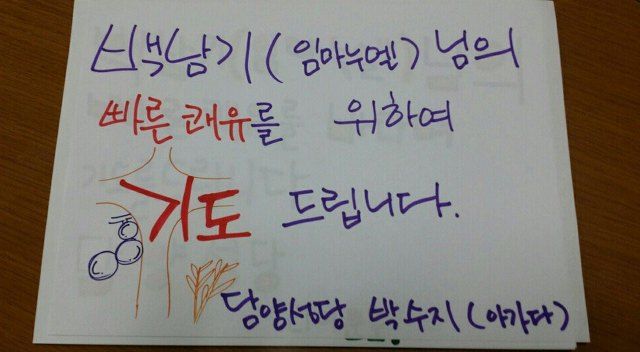 백남기(임마누엘)님의
빠른 쾌유를 위하여
기도 드립니다.
담양성당 박수지(아가다)